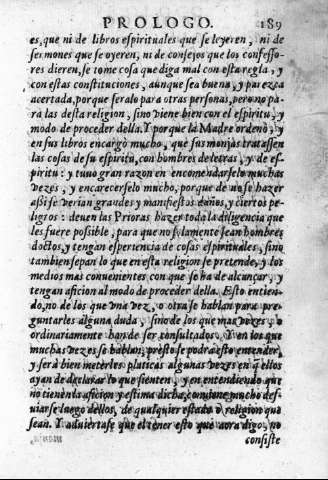 PROLOGO. 189
es, que ni de libros espirituales que se leyeren, ni de
sermones que se oyeren, ni de consejos que los confesso-
res dieren, se tome cosa que diga mal con esta regla, y
con estas constituciones, aunque sea buena, y parezca
acertada, porque seralo para otras personas, pero no pa-
ra las desta religion, sino viene bien con el espiritu, y
modo de proceder della. Y porque la Madre ordenò, y
en sus libros encargò mucho, que sus monjas tratassen
las cosas de su espiritu, con hombres de letras, y de es-
piritu: y tuuo gran razon en encomendarselo muchas
vezes, y encarecerselo mucho, porque de no se hazer
assi se verian grandes y manifiestos daños, y ciertos pe-
ligros: deuen las Prioras hazer toda la diligencia que
les fuere possible, para que no solamente sean hombres
doctos, y tengan esperiencia de cosas espirituales, sino
tambien sepan lo que en esta religion se pretende, y los
medios mas conuenientes con que se ha de alcançar, y
tengan aficion al modo de proceder della. Esto entien-
do, no de los que vna vez, o otra se hablan para pre-
guntarles alguna duda, sino de los que mas vezes, o
ordinariamente han de ser consultados. Y en los que
muchas vezes se hablan, presto se podra esto entender,
y sera bien meterles platicas algunas vezes en q̃ ellos
ayan de declarar lo que sienten, y en entendiendo que
no tienen la aficion y estima dicha, conuiene mucho des-
uiarse luego dellos, de qualquier estado o religion que
sean. Y aduiertase que el tener esto que aora digo, no
consiste